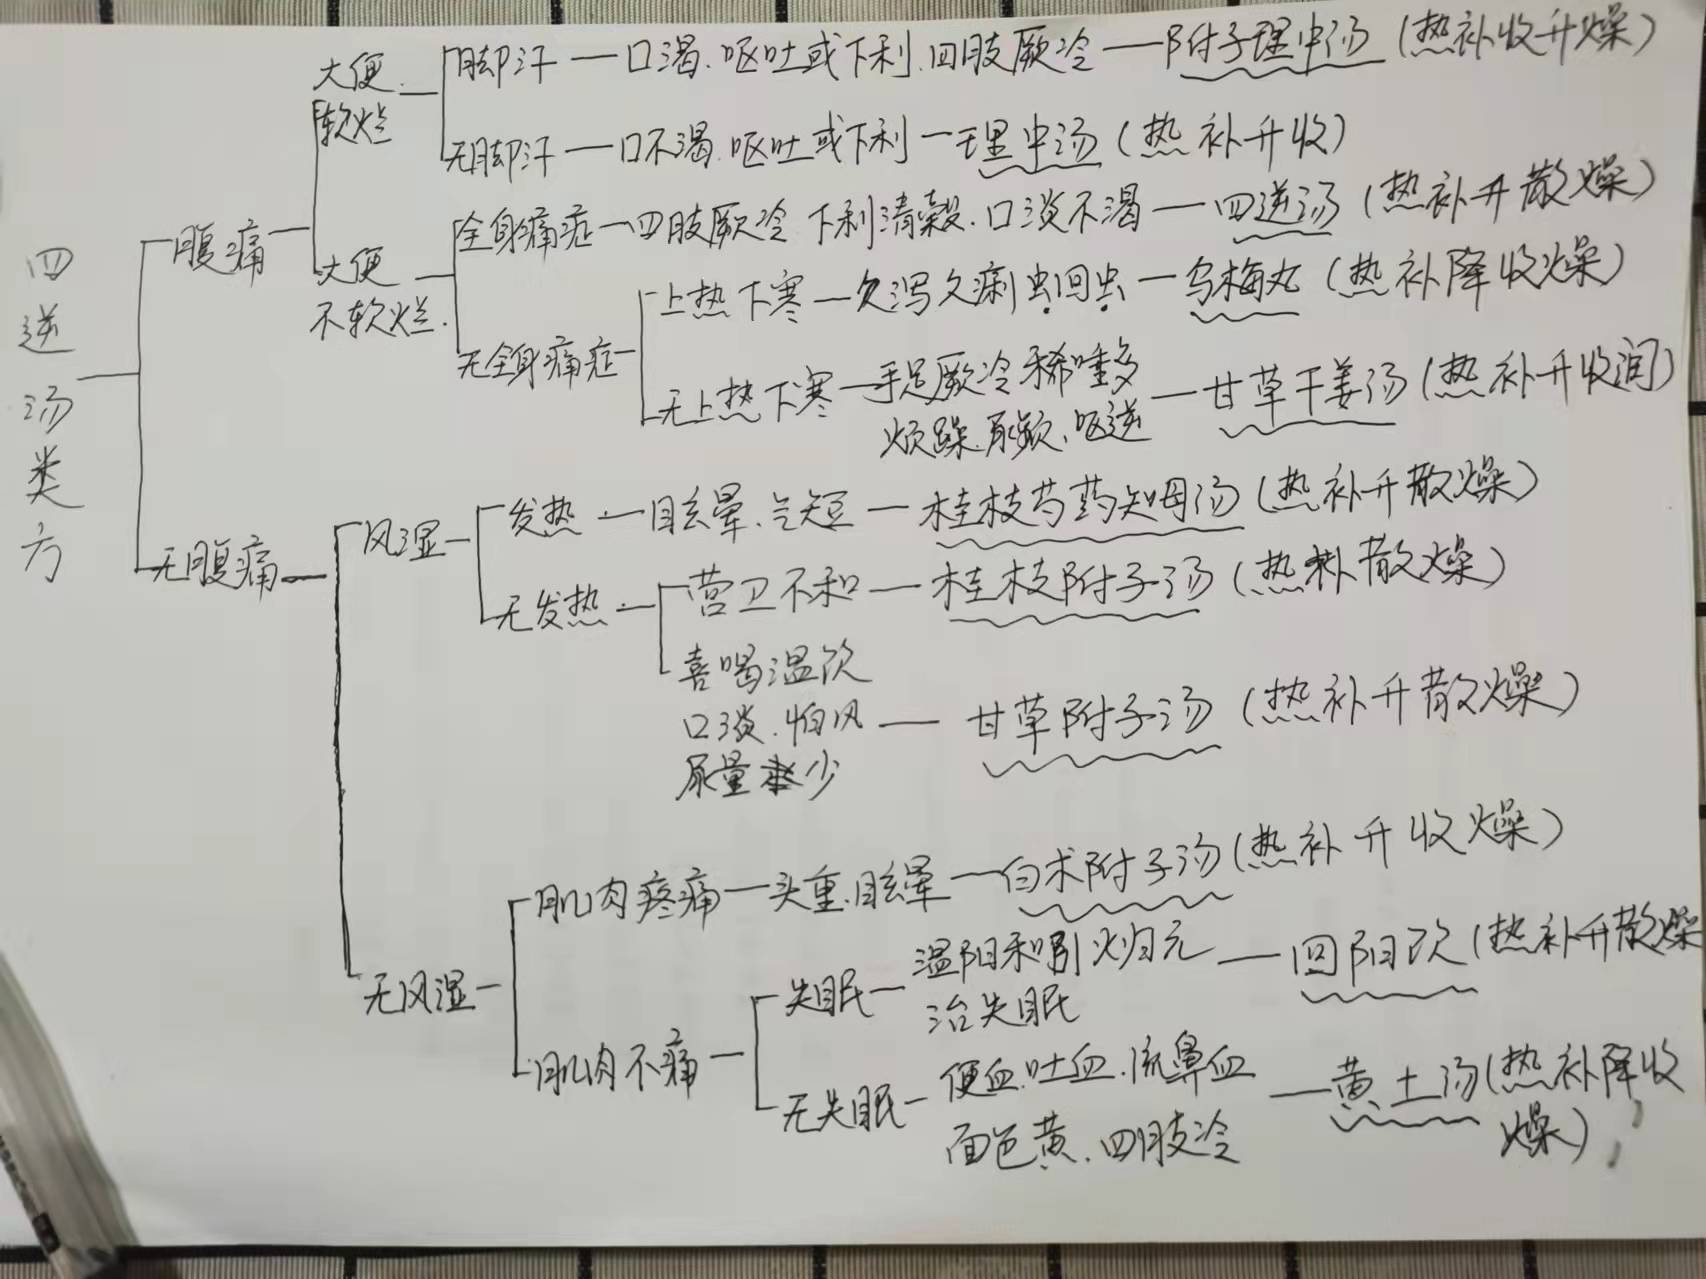 四逆汤类方
腹痛
大便软烂
脚汗 — 口渴、呕吐或下利、四肢厥冷 — 附子理中汤 (热补收升燥)
无脚汗 — 口不渴、呕吐或下利 — 理中汤 (热补升收)
大便不软烂
全身痛症 — 四肢厥冷 下利清穀、口淡不渴 — 四逆汤 (热补升散燥)
无全身痛症
上热下寒 — 久泻久痢 蛔虫 — 乌梅丸 (热补降收燥)
无上热下寒 — 手足厥冷 稀唾多
烦躁、尿频、呕逆 — 甘草干姜汤 (热补升收润)
无腹痛
风湿
发热 — 目眩晕、气短 — 桂枝芍药知母汤 (热补升散燥)
无发热
营卫不和 — 桂枝附子汤 (热补散燥)
喜喝温饮
口淡、怕风 — 甘草附子汤 (热补升散燥)
尿量少
无风湿
肌肉疼痛 — 头重、目眩晕 — 白术附子汤 (热补升收燥)
肌肉不痛
失眠 — 温阳和引火归元
治失眠 — 回阳饮 (热补升散燥
无失眠 — 便血、吐血、流鼻血
面色黄、四肢冷 — 黄土汤 (热补降收
燥)